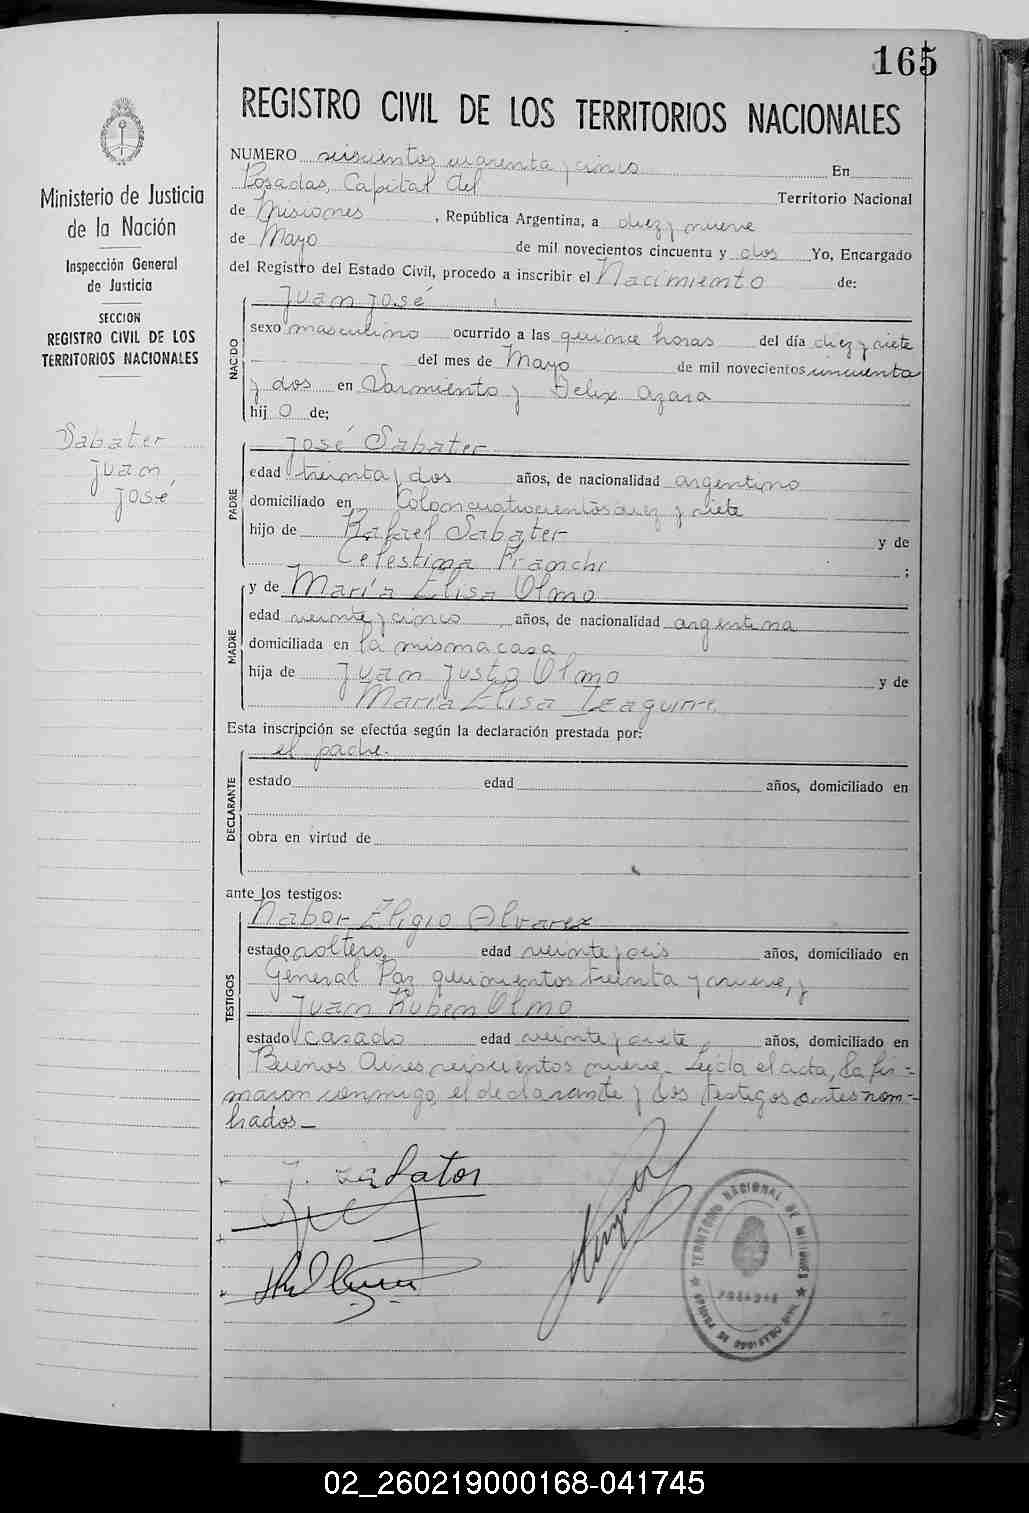 165
REGISTRO CIVIL DE LOS TERRITORIOS NACIONALES
Ministerio de Justicia
de la Nación
Inspección General
de Justicia
SECCION
REGISTRO CIVIL DE LOS
TERRITORIOS NACIONALES
Sabater
Juan
José
NUMERO seiscientos cuarenta y cinco En
Posadas, Capital del Territorio Nacional
de Misiones, República Argentina, a diez y nueve
de Mayo de mil novecientos cincuenta y dos Yo, Encargado
del Registro del Estado Civil, procedo a inscribir el Nacimiento de:
NACIDO
Juan José
sexo masculino ocurrido a las quince horas del día diez y siete
del mes de Mayo de mil novecientos cincuenta
y dos en Sarmiento y Felix Azara
hij o de;
PADRE
José Sabater
edad treinta y dos años, de nacionalidad argentino
domiciliado en Colon cuatrocientos diez y siete
hijo de Rafael Sabater y de
Celestina Franchi ;
MADRE
y de María Elisa Olmo
edad veinte y cinco años, de nacionalidad argentina
domiciliada en la misma casa
hija de Juan Justo Olmo y de
María Elisa Izaguirre,
Esta inscripción se efectúa según la declaración prestada por:
DECLARANTE
el padre.
estado edad años, domiciliado en
obra en virtud de
ante los testigos:
TESTIGOS
Nabor Eligio Alvarez
estado soltero, edad veinte y seis años, domiciliado en
General Paz quinientos treinta y nueve, y
Juan Ruben Olmo
estado casado edad veinte y siete, años, domiciliado en
Buenos Aires seiscientos nueve. Leida el acta, la fir=
maron conmigo, el declarante y los testigos antes nom=
brados.
J. Sabater
TERRITORIO NACIONAL DE MISIONES
POSADAS
02_260219000168-041745